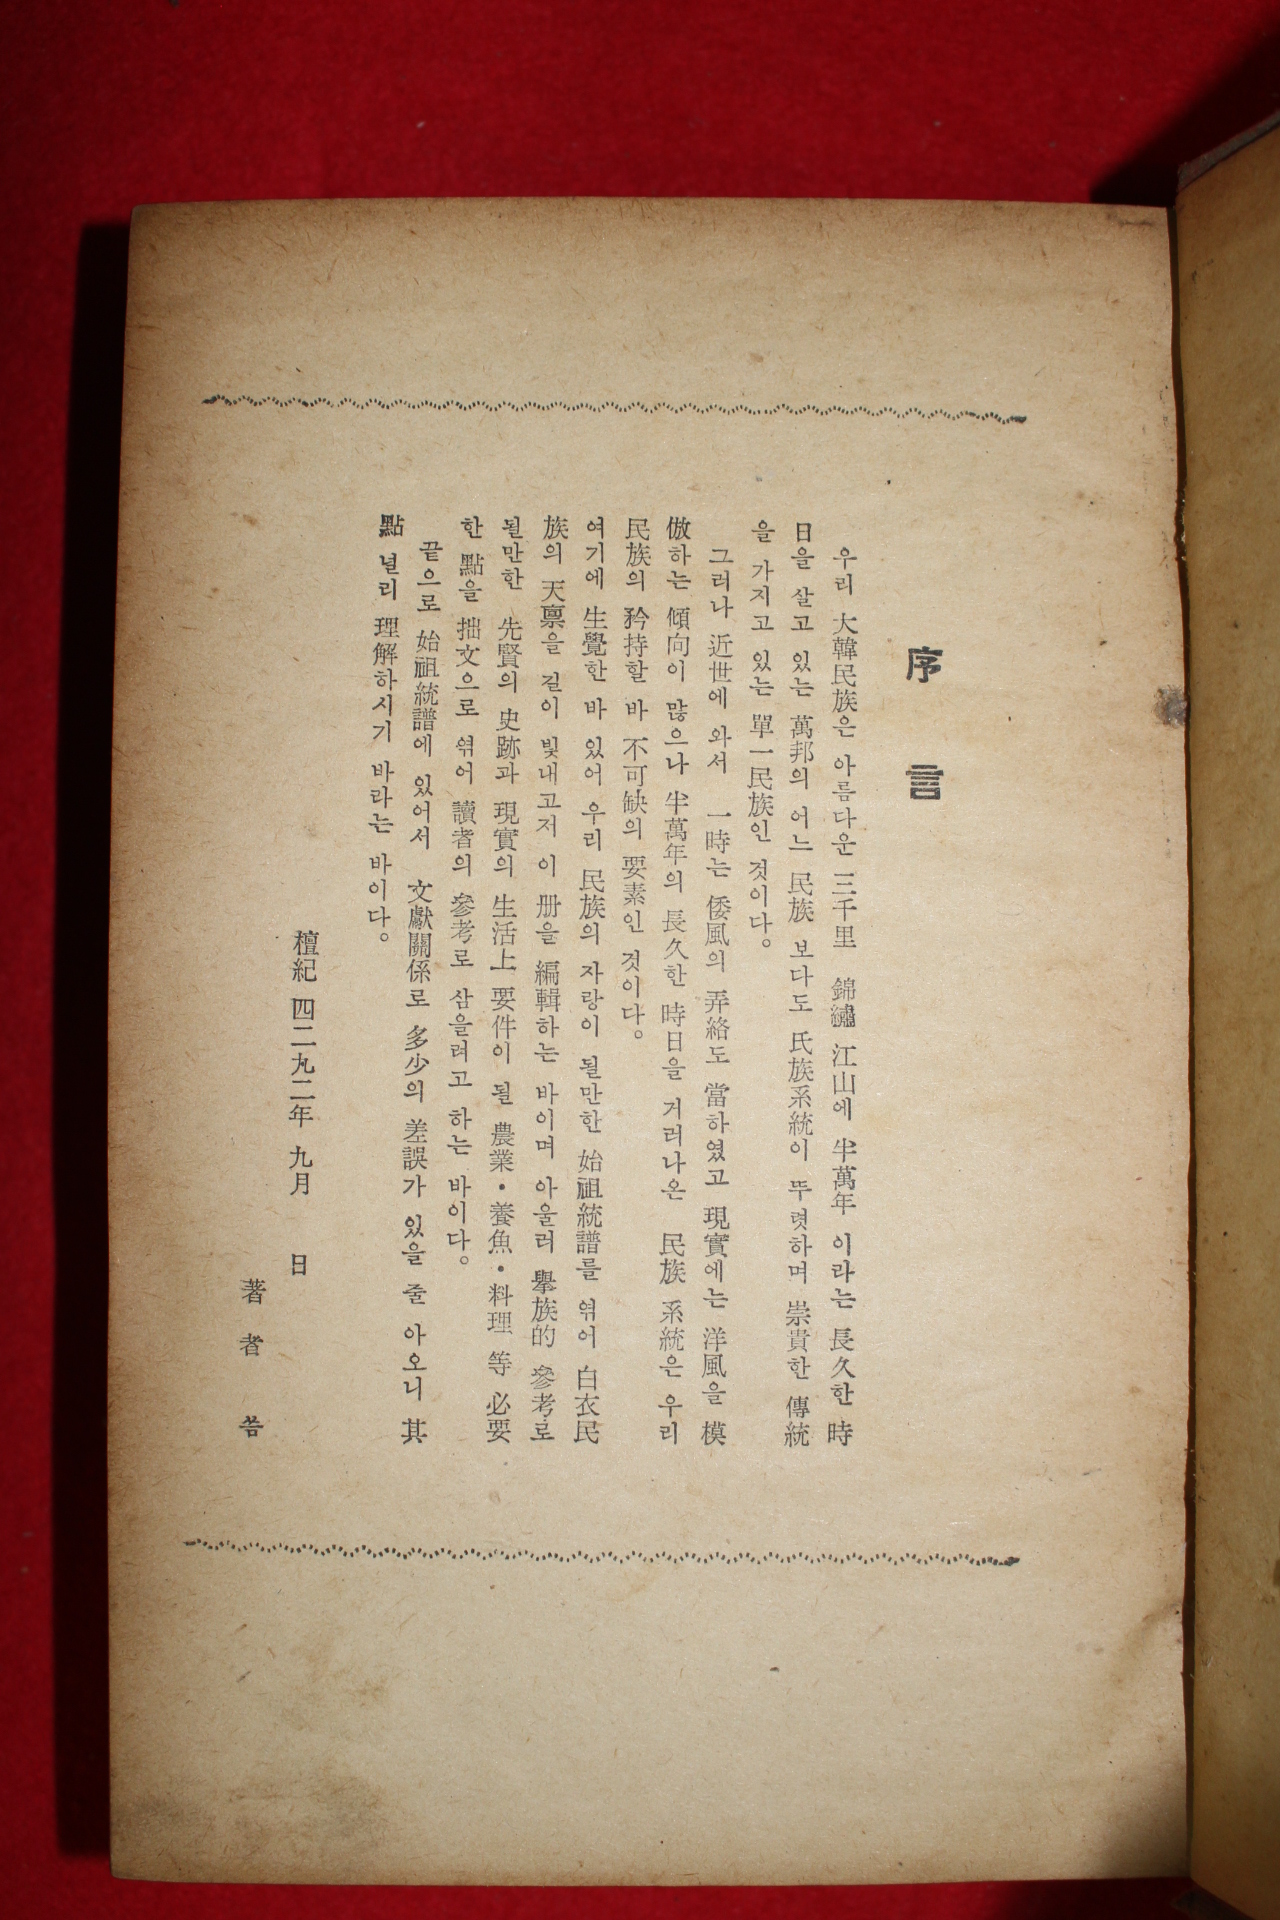 序言
우리 大韓民族은 아름다운 三千里 錦繡 江山에 半萬年 이라는 長久한 時
日을 살고 있는 萬邦의 어느 民族 보다도 氏族系統이 뚜렷하며 崇貴한 傳統
을 가지고 있는 單一民族인 것이다。
그러나 近世에 와서 一時는 倭風의 弄絡도 當하였고 現實에는 洋風을 模
倣하는 傾向이 많으나 半萬年의 長久한 時日을 거러나온 民族 系統은 우리
民族의 矜持할 바 不可缺의 要素인 것이다。
여기에 生覺한 바 있어 우리 民族의 자랑이 될만한 始祖統譜를 엮어 白衣民
族의 天稟을 길이 빛내고저 이 册을 編輯하는 바이며 아울러 擧族的 參考로
될만한 先賢의 史跡과 現實의 生活上 要件이 될 農業·養魚·料理 等 必要
한 點을 拙文으로 엮어 讀者의 參考로 삼을려고 하는 바이다。
끝으로 始祖統譜에 있어서 文獻關係로 多少의 差誤가 있을 줄 아오니 其
點 널리 理解하시기 바라는 바이다。
檀紀 四二九二年 九月 日
著者 씀